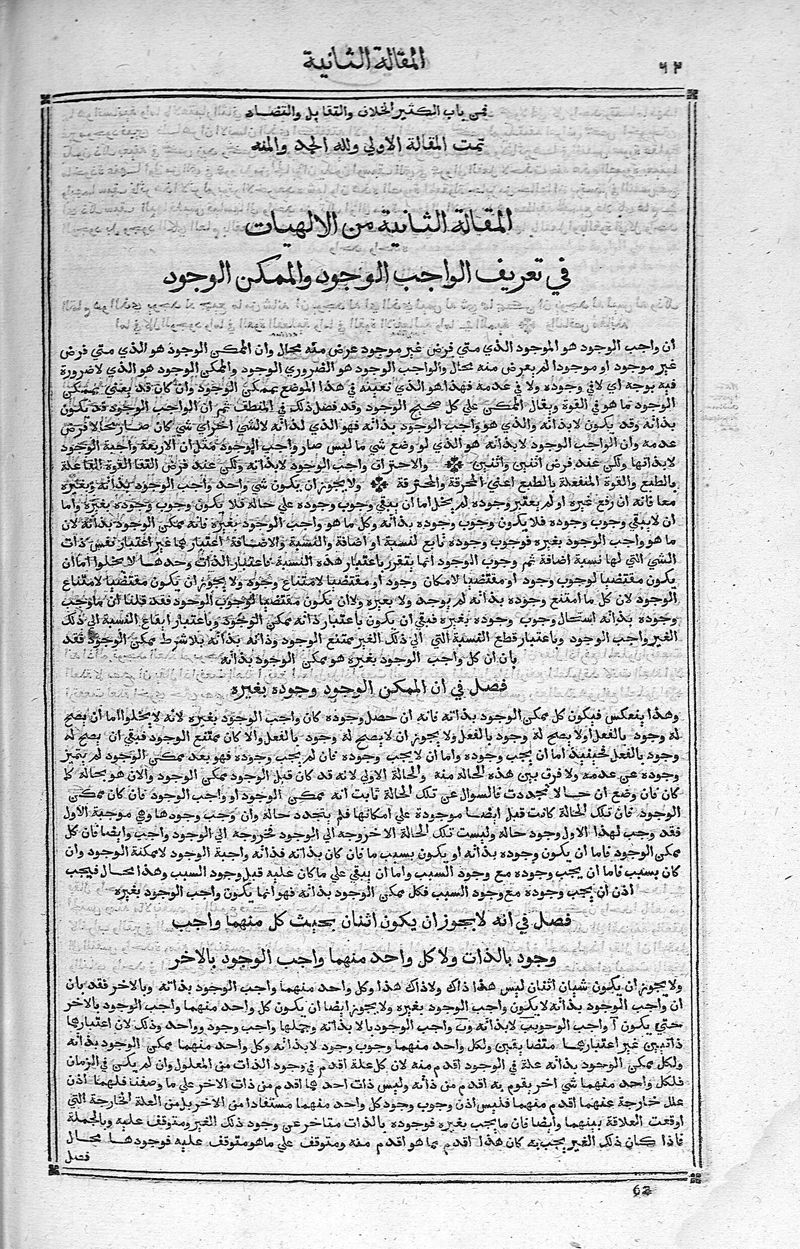 ٦٢
المقالة الثانية
فمن باب الكثير الخلاف والتقابل والتضاد
تمت المقالة الاولي ولله الحمد والمنه
المقالة الثانية من الالهيات
في تعريف الواجب الوجود والممكن الوجود
ان واجب الوجود هو الموجود الذي متي فرض غير موجود عرض منه محال وان الممكن الوجود هو الذي متي فرض
غير موجود او موجودا لم يعرض منه محال والواجب الوجود هو الضروري الوجود والممكن الوجود هو الذي لا ضرورة
فيه بوجه اي لا في وجوده ولا في عدمه فهذا هو الذي نعينه في هذا الموضع بممكن الوجود وان كان قد يعني بممكن
الوجود ما هو في القوة ويقال الممكن علي كل صحيح الوجود وقد فصل ذلك في المنطق ثم ان الواجب الوجود قد يكون
بذاته وقد يكون لا بذاته والذي هو واجب الوجود بذاته فهو الذي لذاته لا لشي اخر اي شي كان صار محالا فرض
عدمه وان الواجب الوجود لا بذاته هو الذي لو وضع شي ما ليس صار واجب الوجود مثل ان الاربعة واجبة الوجود
لا بذاتها ولكن عند فرض اثنين واثنين والاحتراق واجب الوجود لا بذاته ولكن عند فرض التقا القوة الفاعلة
بالطبع والقوة المنفعلة بالطبع اعني المحرقة والمحترقة ولا يجوز ان يكون شي واحد واجب الوجود بذاته وبغيره
معا فانه ان رفع غيره او لم يعتبر وجوده لم يخل اما ان يبقي وجوب وجوده علي حاله فلا يكون وجوب وجوده بغيره واما
ان لا يبقي وجوب وجوده فلا يكون وجوب وجوده بذاته وكل ما هو واجب الوجود بغيره فانه ممكن الوجود بذاته لان
ما هو واجب الوجود بغيره فوجوب وجوده تابع لنسبة او اضافة والنسبة والاضافة اعتبارهما غير اعتبار نفس ذات
الشي التي لها نسبة اضافة ثم وجوب الوجود انما يتقرر باعتبار هذه النسبة فاعتبار الذات وحدها لا يخلوا اما ان
يكون مقتضيا لوجوب وجود او مقتضيا لامكان وجود او مقتضيا لامتناع وجود ولا يجوز ان تكون مقتضيا لامتناع
الوجود لان كل ما امتنع وجوده بذاته لم يوجد ولا بغيره ولا ان يكون مقتضيا لوجوب الوجود فقد قلنا ان ما وجب
وجوده بذاته استحال وجوب وجوده بغيره فبقي ان يكون باعتبار ذاته ممكن الوجود وباعتبار ايقاع النسبة الي ذلك
الغير واجب الوجود وباعتبار قطع النسبة التي الي ذلك الغير ممتنع الوجود وذاته بذاته بلا شرط ممكن الوجود فقد
بان ان كل واجب الوجود بغيره هو ممكن الوجود بذاته
فصل في ان الممكن الوجود وجوده بغيره
وهذا ينعكس فيكون كل ممكن الوجود بذاته فانه ان حصل وجوده كان واجب الوجود بغيره لانه لا يخلوا اما ان يصح
له وجود بالفعل او لا يصح له وجود بالفعل ولا يجوز ان لا يصح له وجود بالفعل والا كان ممتنع الوجود فبقي ان يصح له
وجود بالفعل فحينيذ اما ان يجب وجوده واما ان لا يجب وجوده فان لم يجب وجوده فهو بعد ممكن الوجود لم يتميز
وجوده عن عدمه ولا فرق بين هذه الحالة منه والحالة الاولي لانه قد كان قبل الوجود ممكن الوجود والان هو بحاله كما
كان فان وضع ان حالا تجددت فالسوال عن تلك الحالة ثابت انه ممكن الوجود او واجب الوجود فان كان ممكن
الوجود فان تلك الحالة كانت قبل ايضا موجودة علي امكانها فلم يتجدد حالة وان وجب وجودها وهي موجبة الاول
فقد وجب لهذا الاول وجود حالة وليست تلك الحالة الا خروجه الي الوجود فخروجه الي الوجود واجب وايضا فان كل
ممكن الوجود فاما ان يكون وجوده بذاته او يكون بسبب ما فان كان بذاته فذاته واجبة الوجود لا ممكنة الوجود وان
كان بسبب فاما ان يجب وجوده مع وجود السبب واما ان يبقي علي ما كان عليه قبل وجود السبب وهذا محال فيجب
اذن ان يجب وجوده مع وجود السبب فكل ممكن الوجود بذاته فهو انما يكون واجب الوجود بغيره
فصل في انه لا يجوز ان يكون اثنان بحيث كل منهما واجب
وجود بالذات ولا كل واحد منهما واجب الوجود بالاخر
ولا يجوز ان يكون شيان اثنان ليس هذا ذاك ولا ذاك هذا وكل واحد منهما واجب الوجود بذاته وبالاخر فقد بان
ان واجب الوجود بذاته لا يكون واجب الوجود بغيره ولا يجوز ايضا ان يكون كل واحد منهما واجب الوجود بالاخر
حتي يكون آ واجب الوجود ب لا بذاته وب واجب الوجود با لا بذاته وجملتهما واجب وجود وواحد وذلك لان اعتبارهما
ذاتين غير اعتبارهما متضايفين ولكل واحد منهما وجوب وجود لا بذاته وكل واحد منهما ممكن الوجود بذاته
ولكل ممكن الوجود بذاته علة في الوجود اقدم منه لان كل علة اقدم في وجود الذات من المعلول وان لم يكن في الزمان
فلكل واحد منهما شي اخر يقوم به اقدم من ذاته وليس ذات احدهما اقدم من ذات الاخر علي ما وصفنا فلهما اذن
علل خارجة عنهما اقدم منهما فليس اذن وجوب وجود كل واحد منهما مستفادا من الاخر بل من العلة الخارجة التي
اوقعت العلاقة بينهما وايضا فان ما يجب بغيره فوجوده بالذات متاخر عن وجود ذلك الغير ومتوقف عليه وبالجملة
فاذا كان ذلك الغير يجب به كان هذا اقدم مما هو اقدم منه ومتوقف علي ما هو متوقف عليه فوجودهما محال
فصل
62